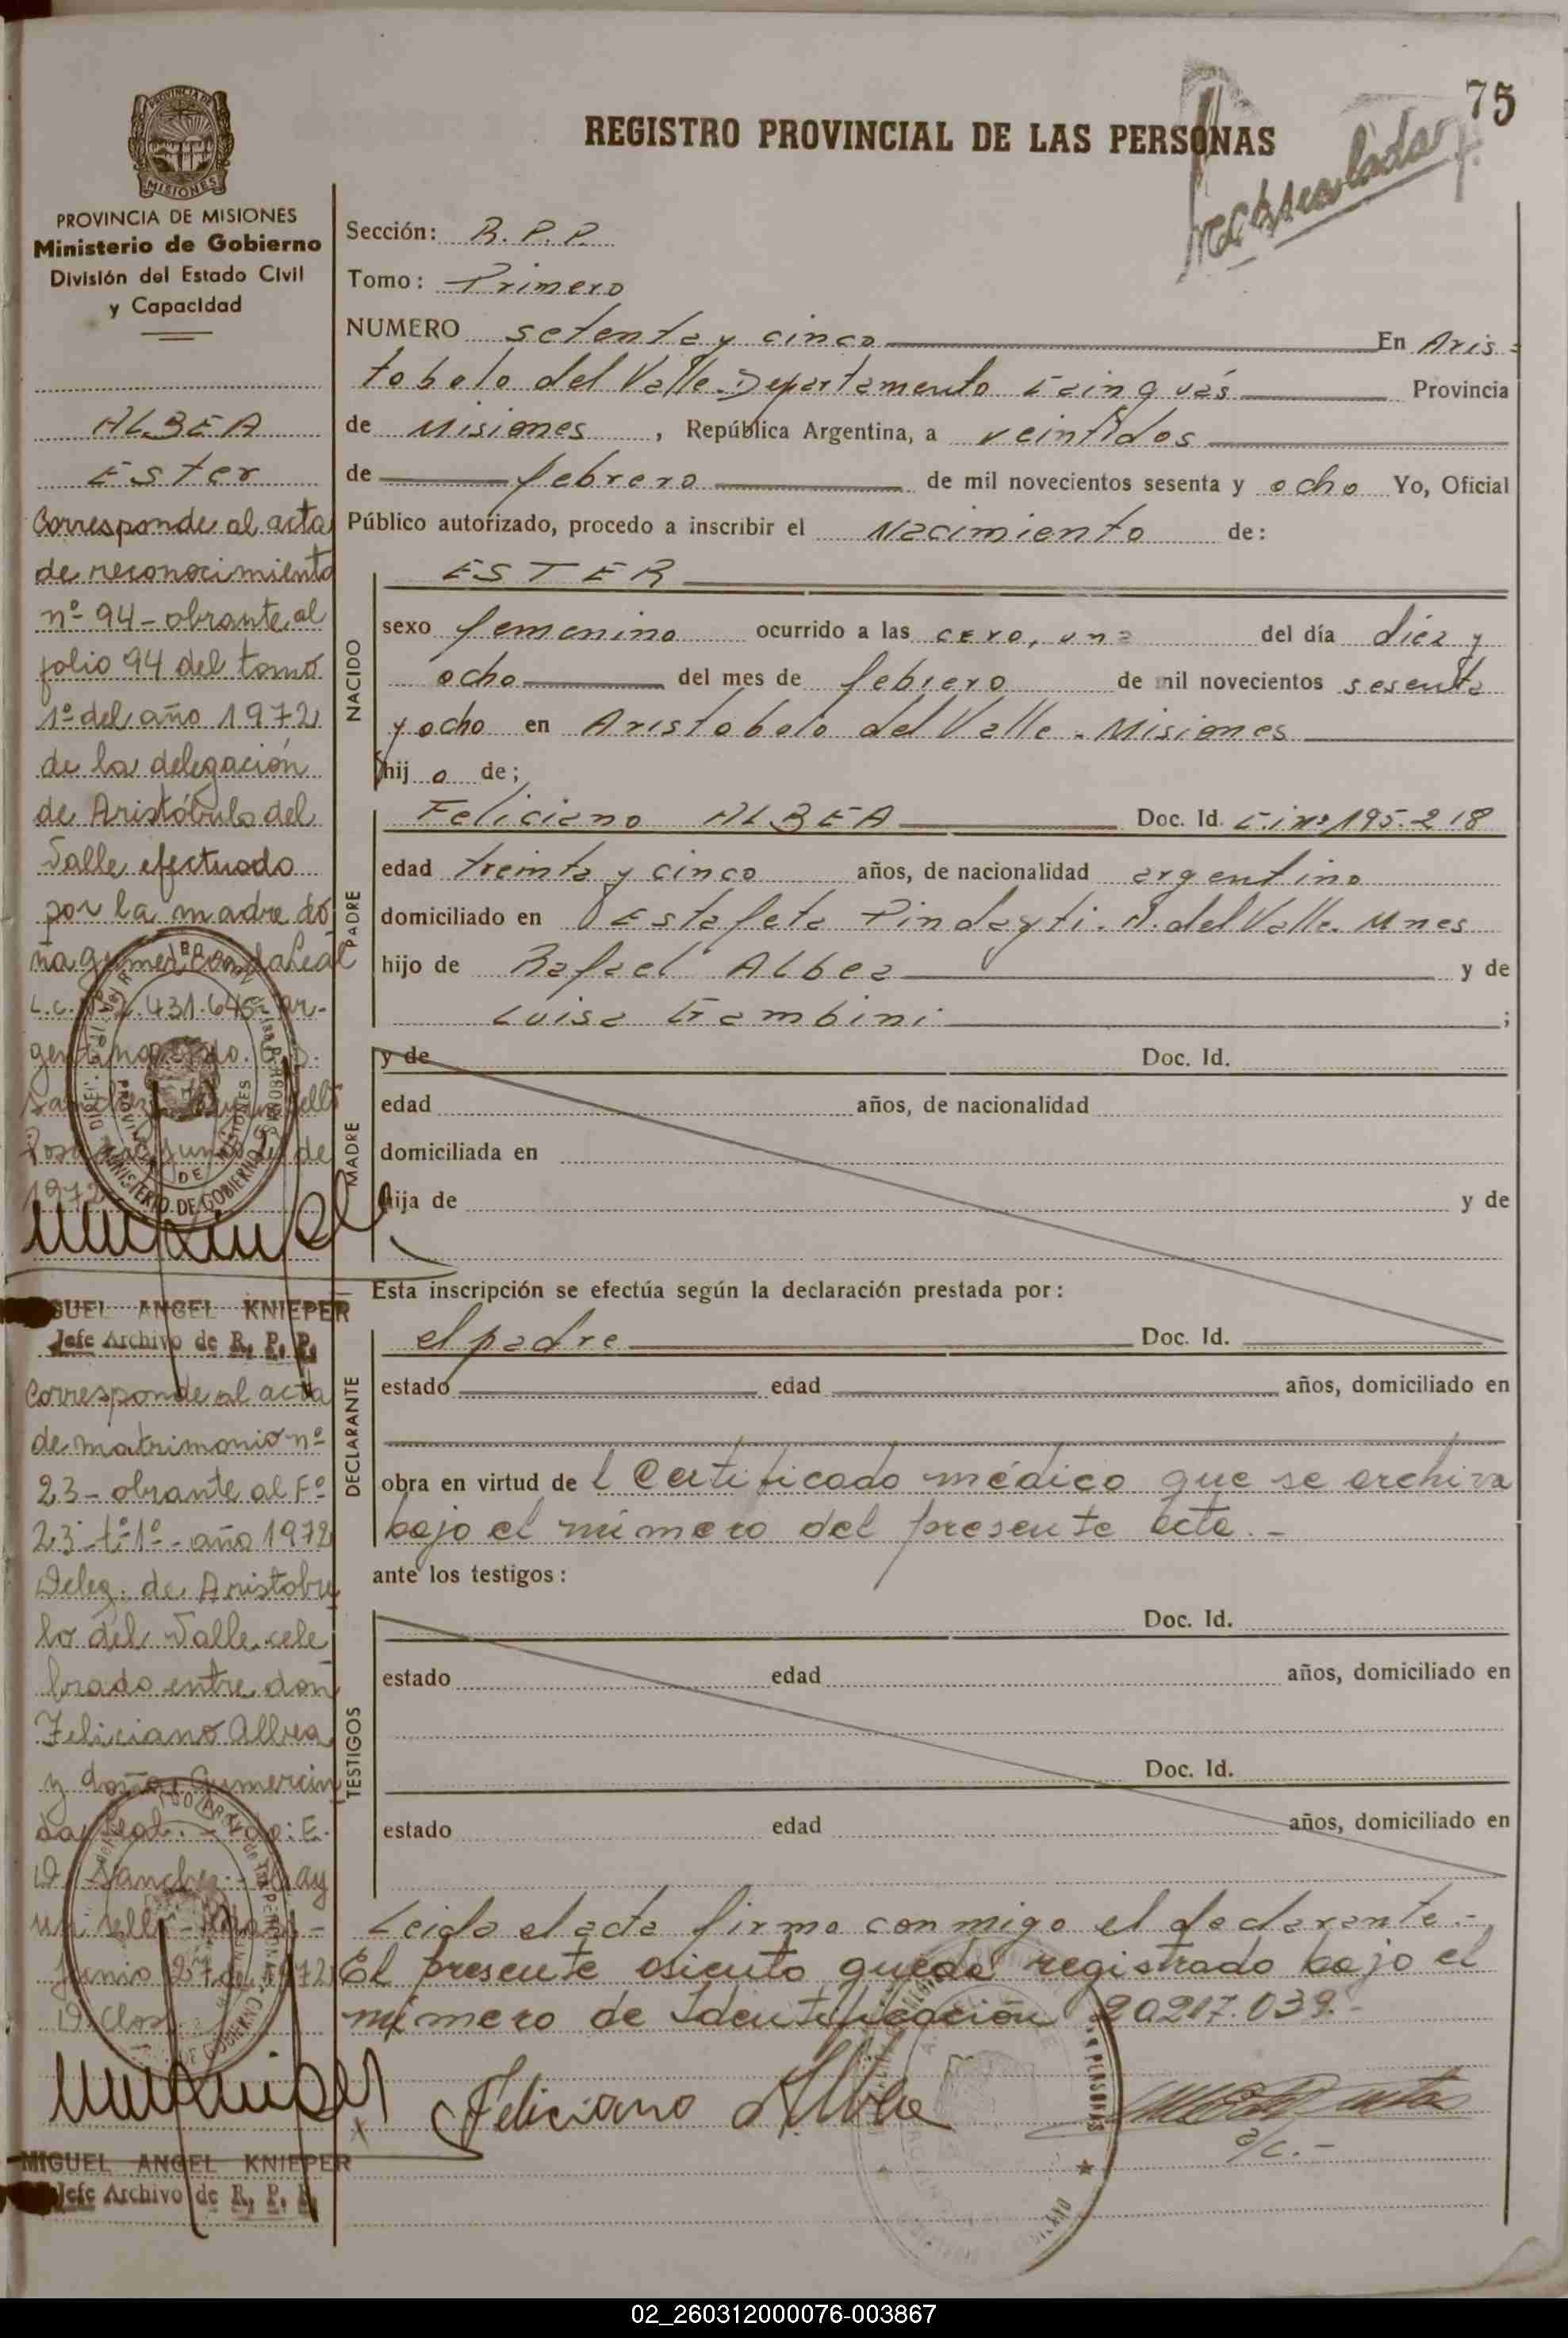 75
REGISTRO PROVINCIAL DE LAS PERSONAS
PROVINCIA DE MISIONES
MISIONES
PROVINCIA DE MISIONES
Ministerio de Gobierno
División del Estado Civil
y Capacidad
ALBEA
Ester
Corresponde al acta
de reconocimiento
nº 94 - obrante al
folio 94 del tomo
1º del año 1972
de la delegación
de Aristóbulo del
Valle efectuado
por la madre do
ña Leal
L.c. 431.645 ar-
de
1972
MIGUEL ANGEL KNIEPER
Jefe Archivo de R. P. P.
Corresponde al acta
de matrimonio nº
23 - obrante al Fº
23 - tº 1º - año 1972
Deleg. de Aristobu
lo del Valle cele
brado entre don
Feliciano Albea
y doña Gumercin
da Leal. - : E.
D. Sanchez - Hay
un sello -
Junio 27 de 1972
MIGUEL ANGEL KNIEPER
Jefe Archivo de R. P. P.
Sección: R. P. P.
Tomo: Primero
NUMERO setenta y cinco En Aris=
tobolo del Valle. Departamento Cainguás Provincia
de Misiones, República Argentina, a veintidos
de febrero de mil novecientos sesenta y ocho Yo, Oficial
Público autorizado, procedo a inscribir el Nacimiento de:
NACIDO
ESTER
sexo femenino ocurrido a las cero, una del día diez y
ocho del mes de febrero de mil novecientos sesenta
y ocho en Aristobolo del Valle. Misiones
hij o de;
PADRE
Feliciano ALBEA Doc. Id. C.i nº 195.218
edad treinta y cinco años, de nacionalidad argentino
domiciliado en Estafeta Pindayti. A. del Valle. Mnes
hijo de Rafael Albea y de
Luisa Gambini ;
MADRE
y de Doc. Id.
edad años, de nacionalidad
domiciliada en
hija de y de
Esta inscripción se efectúa según la declaración prestada por:
DECLARANTE
el padre Doc. Id.
estado edad años, domiciliado en
obra en virtud de l Certificado médico que se archiva
bajo el número del presente acta.-
ante los testigos:
TESTIGOS
Doc. Id.
estado edad años, domiciliado en
Doc. Id.
estado edad años, domiciliado en
Leida el acta firma conmigo el declarante.-
El presente asiento queda registrado bajo el
número de Identificación 20217.039.-
Feliciano Albea
a/c.-
02_260312000076-003867